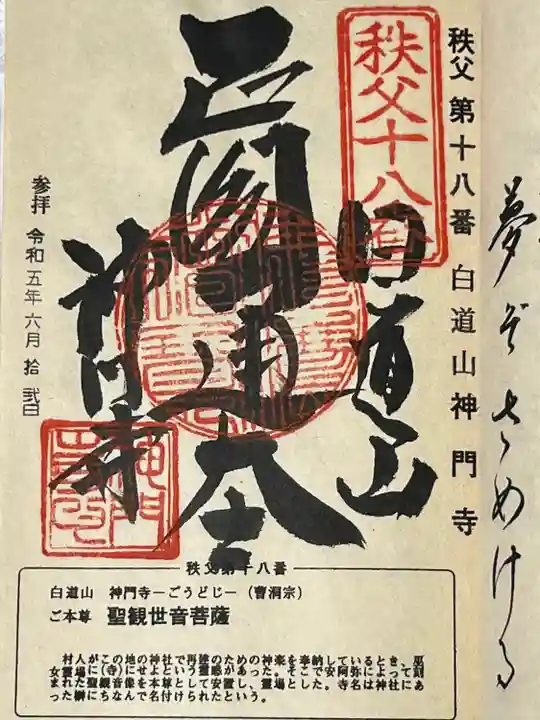 夢
さめける
秩父 第十八番 白道山神門寺
秩父十八番
白道山
正
圓通大士
神門寺
参拝 令和五年六月拾弐日
秩父第十八番
白道山 神門寺－ごうどじ－（曹洞宗）
ご本尊 聖観世音菩薩
村人がこの地の神社で再建のための神楽を奉納しているとき、巫
女に（寺）にせよという霊感があった。そこで安阿弥によって刻
まれた聖観音像を本尊として安置し、霊場とした。寺名は神社にあ
った榊にちなんで名付けられたという。